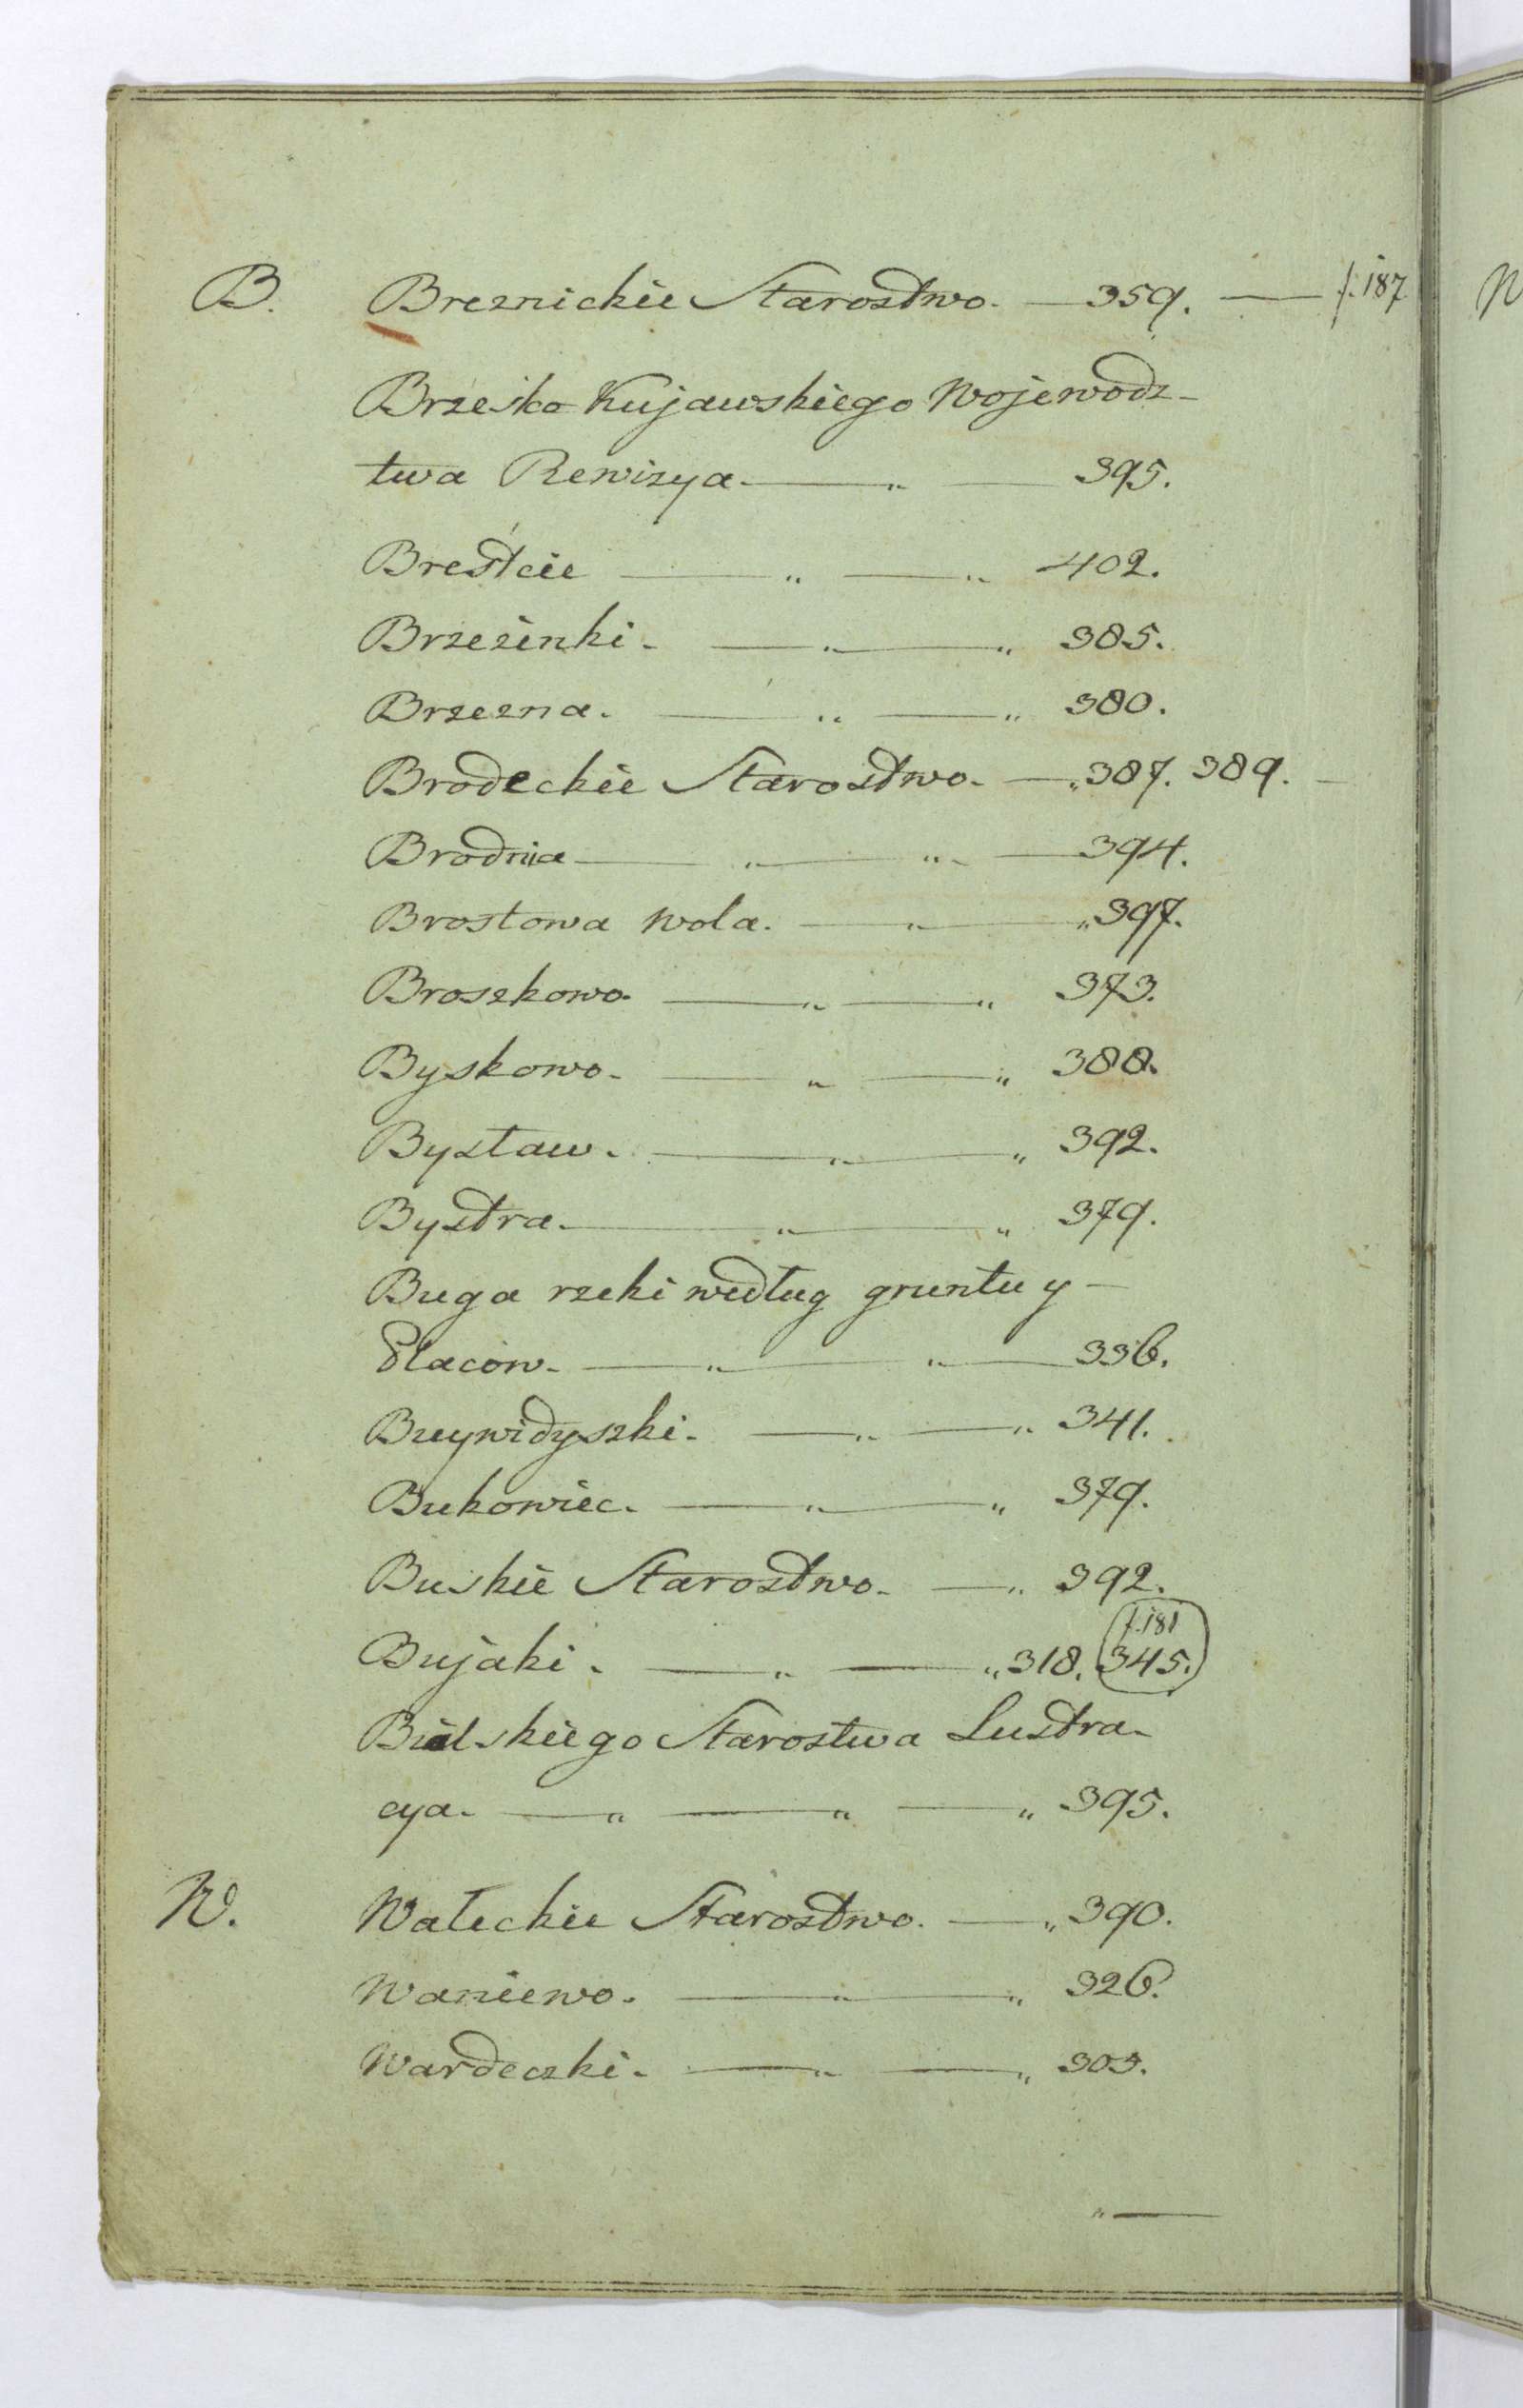 B. Breznickie Starostwo. — 359. — f. 187
Brzesko Kujawskiego Wojewodz-
twa Rewizya. — „ — 395.
Breśtcie — „ — „ 402.
Brzezinki. — „ — „ 385.
Brzezna. — „ — „ 380.
Brodeckie Starostwo. — „ 387. 389. —
Brodnia — „ — „ — 394.
Brostowa Wola. — „ — „ 397.
Broszkowo. — „ — „ 373.
Byskowo. — „ — „ 388.
Bystaw. — „ — „ 392.
Bystra. — „ — „ 379.
Buga rzeki według gruntu y —
Placow. — „ — „ — 336.
Buywidyszki. — „ — „ 341.
Bukowiec. — „ — „ 379.
Buskie Starostwo. — „ 392.
f. 181
Bujaki. — „ — „ 318. 345.
Bielskiego Starostwa Lustra-
cya. — „ — „ — „ 395.
W. Wałeckie Starostwo. — „ 390.
Waniewo. — „ — „ 326.
Wardeczki. — „ — „ 303.
„ —
W